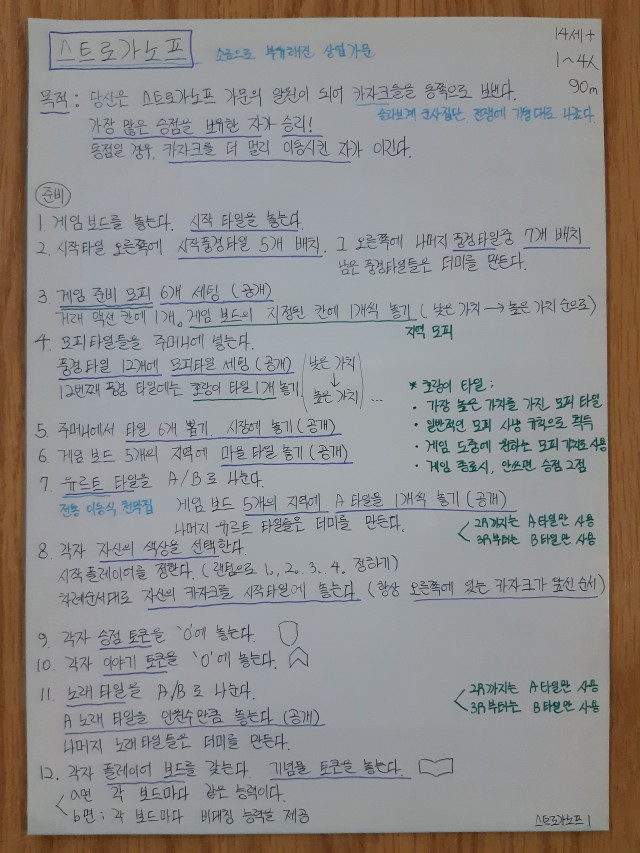 스트로가노프 소금으로 부유해진 상업가문
14세+
1~4人
90m
목적 : 당신은 스트로가노프 가문의 일원이 되어 카자크들을 동쪽으로 보낸다.
슬라브계 군사집단 전쟁에 기병대로 나갔다.
가장 많은 승점을 보유한 자가 승리!
동점일 경우, 카자크를 더 멀리 이동시킨 자가 이긴다.
준비
1 게임 보드를 놓는다. 시작 타일을 놓는다.
2. 시작타일 오른쪽에 시작풍경타일 5개 배치. 그 오른쪽에 나머지 풍경타일중 7개 배치
남은 풍경타일들은 더미를 만든다.
3. 게임 준비 모피 6개 세팅. (공개)
거래 액션 칸에 1개. 게임 보드의 지정된 칸에 1개씩 놓기 (낮은 가치 → 높은 가치 순으로)
지역 모피
4. 모피타일들을 주머니에 넣는다.
풍경타일 12개에 모피타일 세팅 (공개) (낮은 가치
↓
12번째 풍경 타일에는 호랑이 타일 1개 놓기 높은 가치) ...
* 호랑이 타일 :
• 가장 높은 가치를 가진 모피 타일
• 일반적인 모피 사냥 규칙으로 획득
• 게임 도중에 원하는 모피 가치로 사용
• 게임 종료시, 안쓰면 승점 2점
5. 주머니에서 타일 6개 뽑기. 시장에 놓기 (공개)
6. 게임 보드 5개의 지역에 마을 타일 놓기 (공개)
7. 유르트 타일을 A/B로 나눈다.
전통 이동식 천막집 게임 보드 5개의 지역에 A타일을 1개씩 놓기 (공개)
나머지 유르트 타일들은 더미를 만든다.
2R까지는 A타일만 사용
3R부터는 B타일만 사용
8. 각자 자신의 색상을 선택한다.
시작 플레이어를 정한다. (랜덤으로 1, 2, 3, 4. 정하기)
차례순서대로 자신의 카자크를 시작타일에 놓는다. (항상 오른쪽에 있는 카자크가 앞선 순서)
9. 각자 승점 토큰을 '0'에 놓는다.
10. 각자 이야기 토큰을 '0'에 놓는다.
11. 노래 타일을 A/B로 나눈다.
A 노래 타일을 인원수만큼 놓는다. (공개)
나머지 노래 타일들은 더미를 만든다.
2R까지는 A타일만 사용
3R부터는 B타일만 사용
12. 각자 플레이어 보드를 갖는다. 기념물 토큰을 놓는다.
a면 각 보드마다 같은 능력이다.
b면 : 각 보드마다 비대칭 능력을 제공
스트로가노프 1